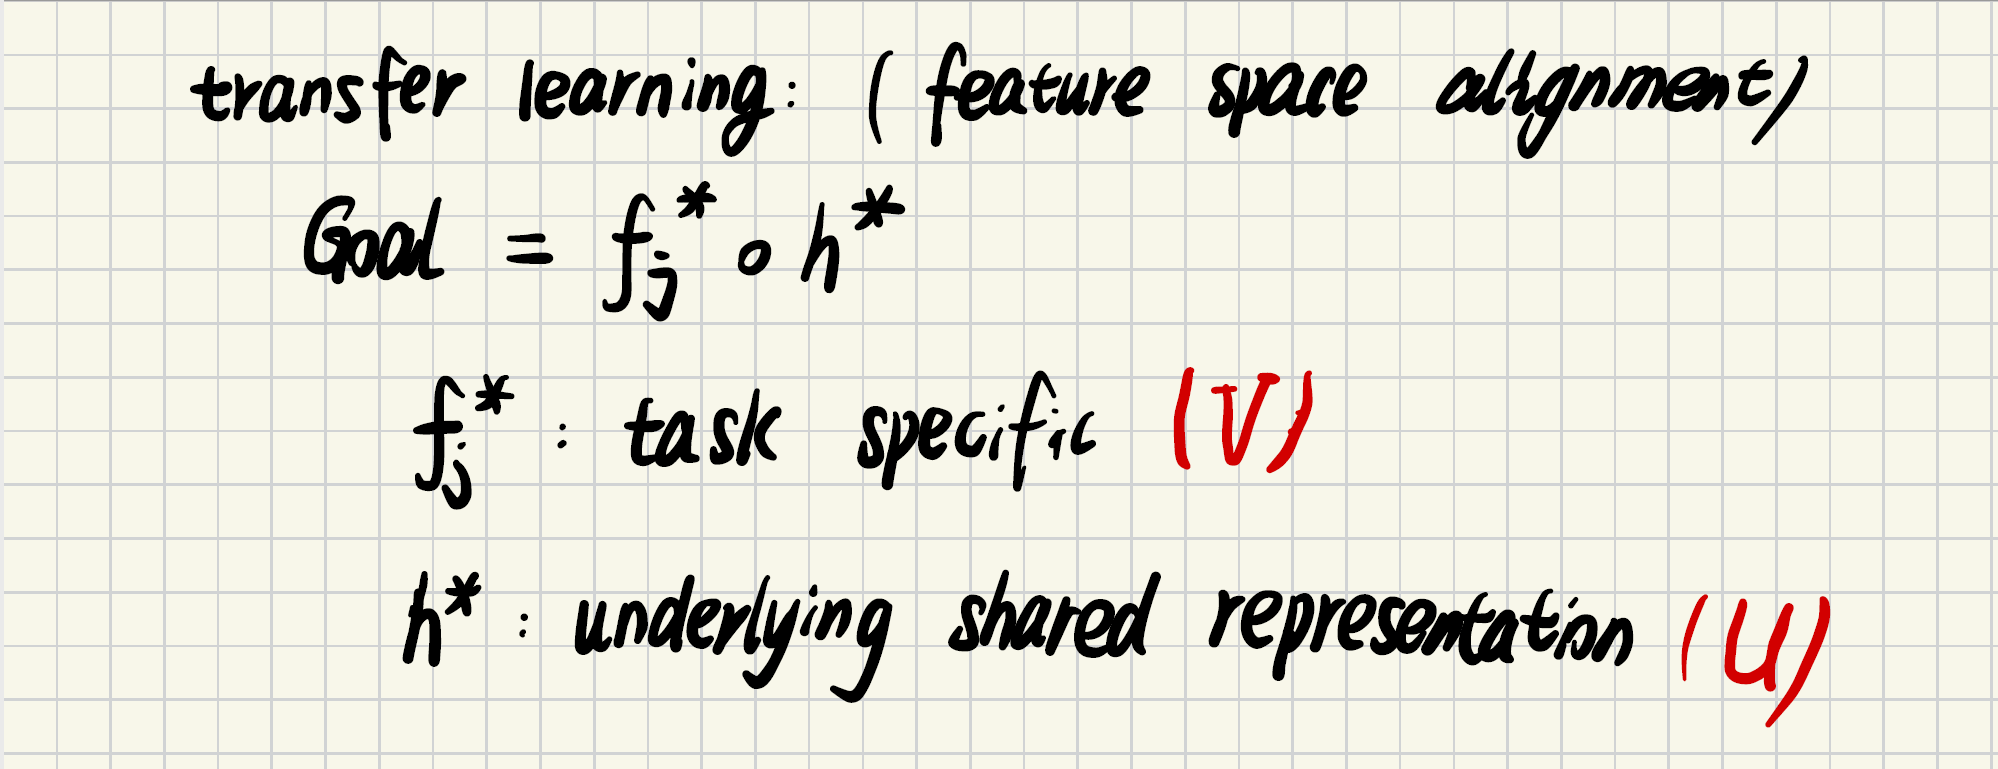 transfer learning: (feature space alignment)
Goal = f_j^* ∘ h^*
f_j^* : task specific (V)
h^* : underlying shared representation (U)